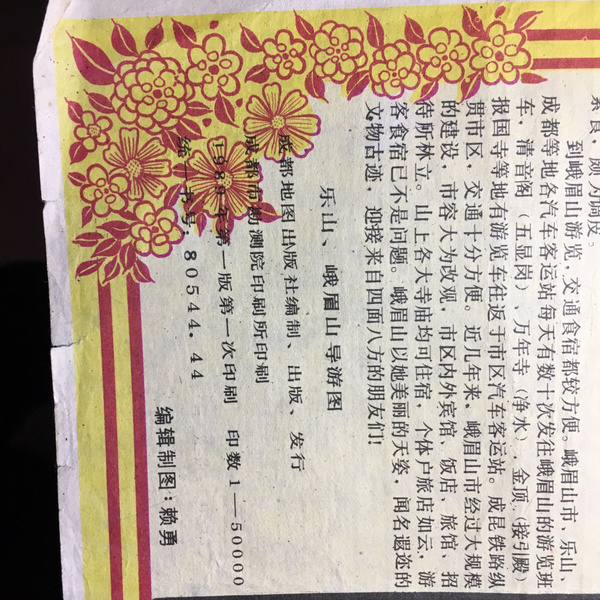 素食，颇为调皮。
到峨眉山游览，交通食宿都较方便。峨眉山市、乐山、
成都等地各汽车客运站每天有数十次发往峨眉山的游览班
车，清音阁（五显岗）、万年寺（净水）、金顶（接引殿）
报国寺等地有游览车往返于市区汽车客运站。成昆铁路纵
贯市区，交通十分方便。近几年来，峨眉山市经过大规模
的建设，市容大为改观，市区内外宾馆、饭店、旅馆、招
待所林立。山上各大寺庙均可住宿，个体户旅店如云，游
客食宿已不是问题。峨眉山以她美丽的天姿，闻名遐迩的
文物古迹，迎接来自四面八方的朋友们！
乐山、峨眉山导游图
成都地图出版社编制、出版、发行
成都市勘测院印刷所印刷
1989年第一版第一次印刷 印数1—50000
统一书号：80544.44
编辑制图：赖勇